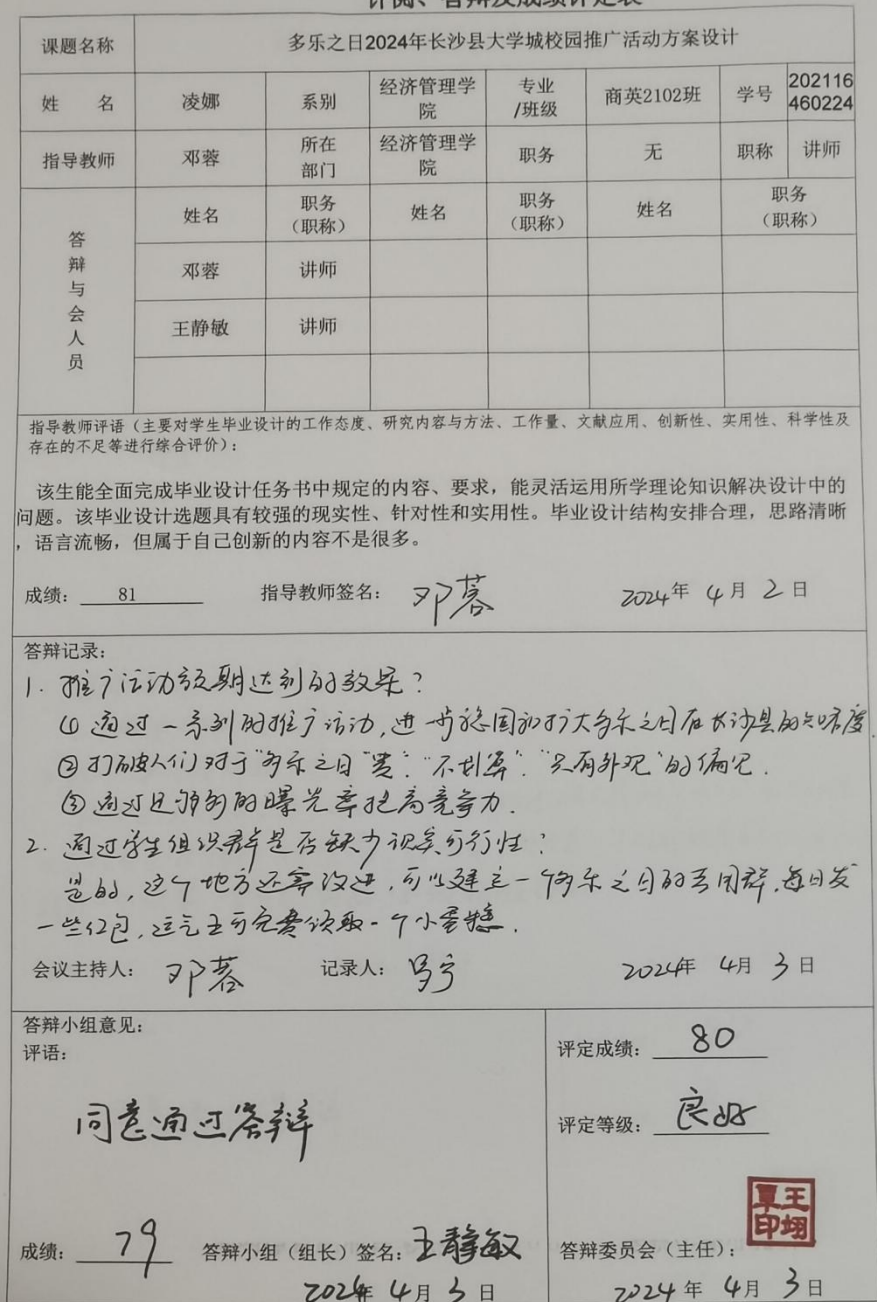 评阅、答辩及成绩评定表
课题名称 多乐之日2024年长沙县大学城校园推广活动方案设计
姓 名 凌娜 系别 经济管理学院 专业/班级 商英2102班 学号 202116460224
指导教师 邓蓉 所在部门 经济管理学院 职务 无 职称 讲师
答辩与会人员 姓名 职务（职称） 姓名 职务（职称） 姓名 职务（职称）
邓蓉 讲师
王静敏 讲师
指导教师评语（主要对学生毕业设计的工作态度、研究内容与方法、工作量、文献应用、创新性、实用性、科学性及
存在的不足等进行综合评价）:
该生能全面完成毕业设计任务书中规定的内容、要求，能灵活运用所学理论知识解决设计中的
问题。该毕业设计选题具有较强的现实性、针对性和实用性。毕业设计结构安排合理，思路清晰
，语言流畅，但属于自己创新的内容不是很多。
成绩: 81 指导教师签名: 邓蓉 2024年 4月 2日
答辩记录:
1. 推广活动预期达到的效果?
① 通过一系列的推广活动,进一步稳固和扩大多乐之日在长沙县的知名度.
② 打破人们对于"多乐之日"贵"."不划算"."只有外观"的偏见.
③ 通过足够多的曝光率提高竞争力.
2. 通过学生组织群是否缺少现实可行性?
是的,这个地方还需改进,可以建立一个多乐之日的专用群,每日发
一些红包,运气王可免费领取一个小蛋糕.
会议主持人: 邓蓉 记录人: 2024年 4月 3日
答辩小组意见:
评语:
同意通过答辩
成绩: 79 答辩小组（组长）签名: 王静敏
2024年 4月 3日
评定成绩: 80
评定等级: 良好
答辩委员会（主任）:
2024年 4月 3日